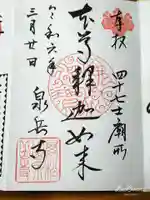 奉拝
四十七士廟所
本尊釈迦如来
令和六年
三月廿日
泉岳寺